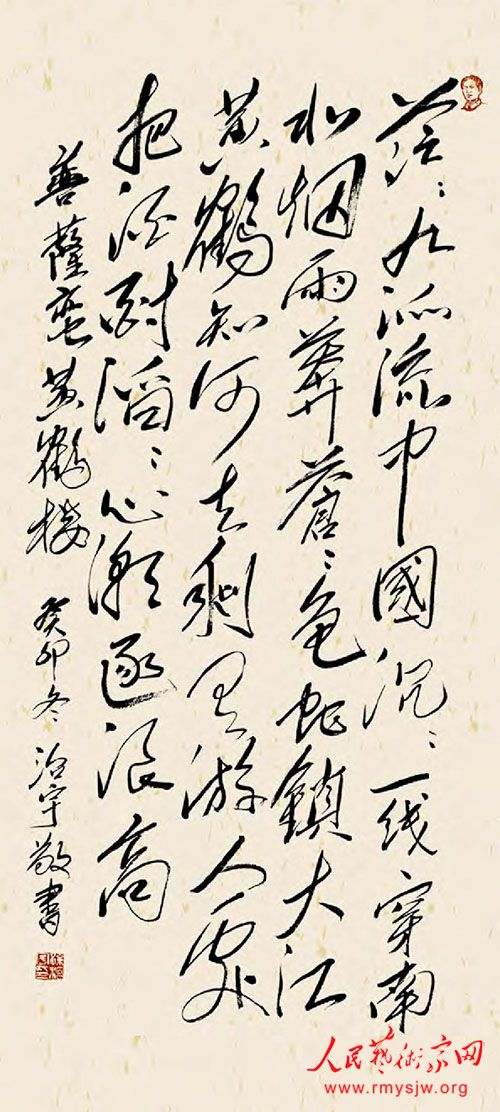 茫〻九派流中國沉〻一线穿南
北烟雨莽蒼〻龟蛇鎖大江
黄鶴知何去剩有游人處
把酒酹滔〻心潮逐浪高
菩薩蛮黄鶴楼 癸卯冬 治宇敬書
人民藝術家网
www.rmysjw.org